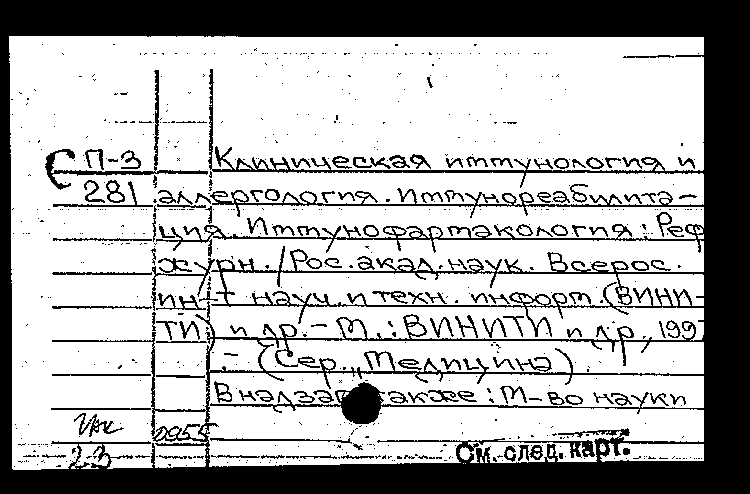 П-3 Клиническая иммунология и
281 аллергология. Иммунореабилита-
ция. Иммунофармакология: Реф
журн. /Рос. акад. наук. Всерос.
ин-т науч. и техн. информ. (ВИНИ-
ТИ) и др. - М.: ВИНИТИ и др., 199
. - (Сер. "Медицина).
В надзаг также: М-во науки
0955
23
См. след. карт.